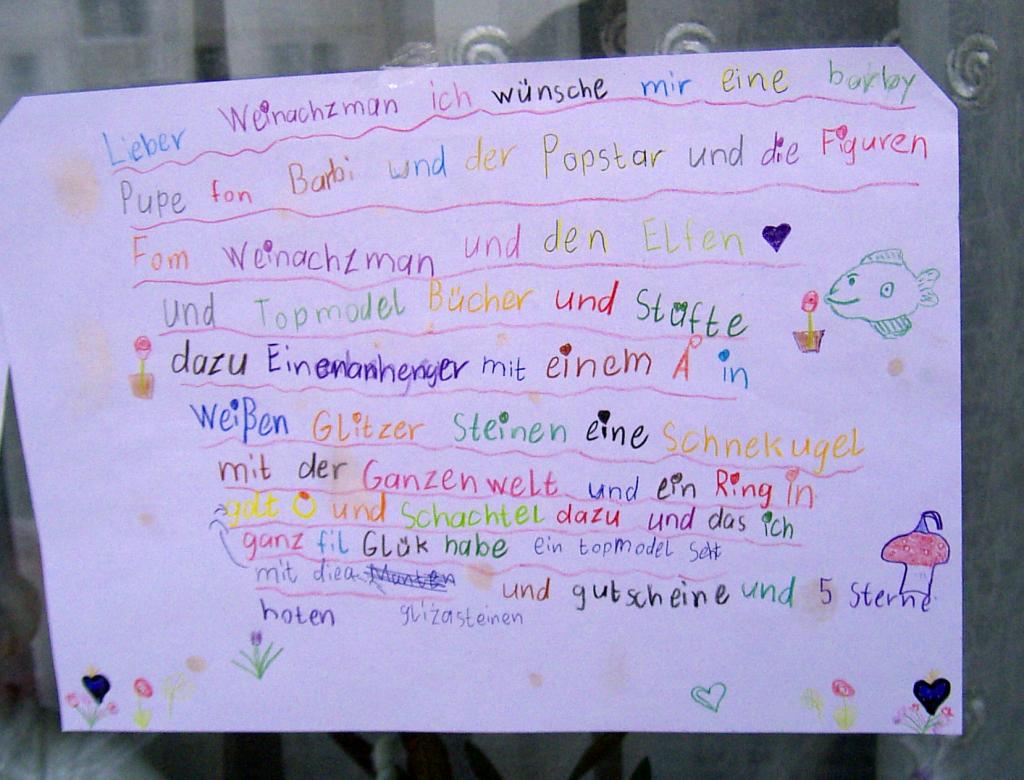 Lieber Weinachzman ich wünsche mir eine barby
Pupe fon Barbi und der Popstar und die Figuren
Fom Weinachzman und den Elfen
und Topmodel Bücher und Stüfte
dazu Einenanhenger mit einem A in
weißen Glitzer Steinen eine Schnekugel
mit der Ganzen welt und ein Ring in
golt und Schachtel dazu und das ich
ganz fil Glük habe ein topmodel Sett
mit diea und gutscheine und 5 Sterne
hoten glizasteinen